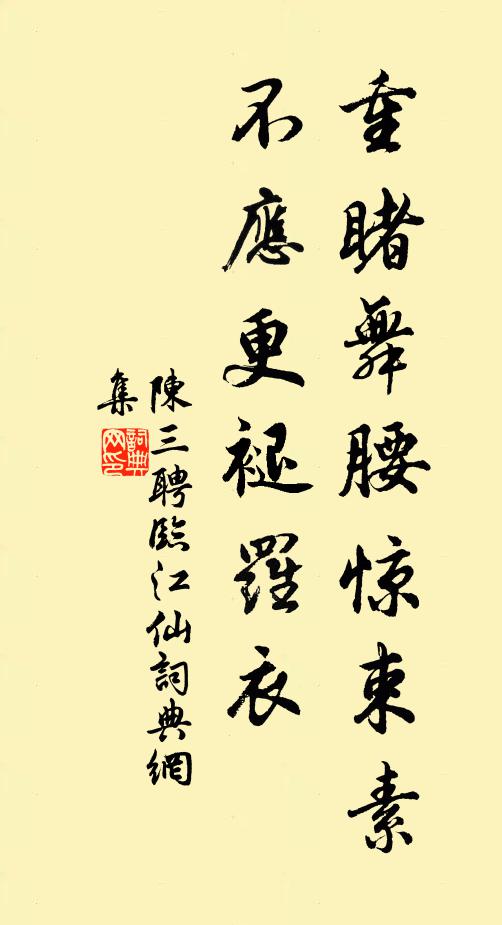 重睹舞腰惊束素
不應更褪羅衣
陳三聘臨江仙詞典網
集
詞典网印